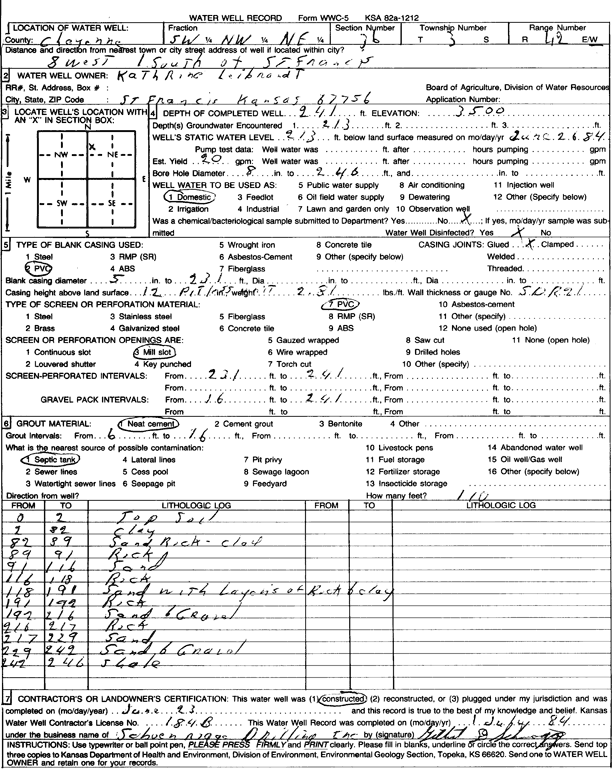 WATER WELL RECORD Form WWC-5 KSA 82a-1212
1 LOCATION OF WATER WELL: Fraction Section Number Township Number Range Number
County: Cheyenne SW ¼ NW ¼ NE ¼ 36 T 3 S R 42 E/W
Distance and direction from nearest town or city street address of well if located within city?
8 west 1 South of ST Francis
2 WATER WELL OWNER: Kathrine Leibrandt
RR#, St. Address, Box # : Board of Agriculture, Division of Water Resources
City, State, ZIP Code : ST Francis Kansas 67756 Application Number:
3 LOCATE WELL'S LOCATION WITH AN "X" IN SECTION BOX:
N
NW X NE
W E
SW SE
S
1 Mile
4 DEPTH OF COMPLETED WELL 241 ft. ELEVATION: 3500
Depth(s) Groundwater Encountered 1. 213 ft. 2. ft. 3. ft.
WELL'S STATIC WATER LEVEL 213 ft. below land surface measured on mo/day/yr June 26.84
Pump test data: Well water was ft. after hours pumping gpm
Est. Yield 20 gpm: Well water was ft. after hours pumping gpm
Bore Hole Diameter 8 in. to 246 ft., and in. to ft.
WELL WATER TO BE USED AS: 5 Public water supply 8 Air conditioning 11 Injection well
1 Domestic 3 Feedlot 6 Oil field water supply 9 Dewatering 12 Other (Specify below)
2 Irrigation 4 Industrial 7 Lawn and garden only 10 Observation well
Was a chemical/bacteriological sample submitted to Department? Yes No X ; If yes, mo/day/yr sample was submitted
Water Well Disinfected? Yes X No
5 TYPE OF BLANK CASING USED: 5 Wrought iron 8 Concrete tile CASING JOINTS: Glued X Clamped
1 Steel 3 RMP (SR) 6 Asbestos-Cement 9 Other (specify below) Welded
2 PVC 4 ABS 7 Fiberglass Threaded
Blank casing diameter 5 in. to 231 ft., Dia in. to ft., Dia in. to ft.
Casing height above land surface 12 weight 2.81 lbs./ft. Wall thickness or gauge No. SDR21
TYPE OF SCREEN OR PERFORATION MATERIAL: 7 PVC 10 Asbestos-cement
1 Steel 3 Stainless steel 5 Fiberglass 8 RMP (SR) 11 Other (specify)
2 Brass 4 Galvanized steel 6 Concrete tile 9 ABS 12 None used (open hole)
SCREEN OR PERFORATION OPENINGS ARE: 5 Gauzed wrapped 8 Saw cut 11 None (open hole)
1 Continuous slot 3 Mill slot 6 Wire wrapped 9 Drilled holes
2 Louvered shutter 4 Key punched 7 Torch cut 10 Other (specify)
SCREEN-PERFORATED INTERVALS: From 231 ft. to 241 ft., From ft. to ft.
From ft. to ft., From ft. to ft.
GRAVEL PACK INTERVALS: From 16 ft. to 241 ft., From ft. to ft.
From ft. to ft., From ft. to ft.
6 GROUT MATERIAL: 1 Neat cement 2 Cement grout 3 Bentonite 4 Other
Grout Intervals: From 6 ft. to 16 ft., From ft. to ft., From ft. to ft.
What is the nearest source of possible contamination: 10 Livestock pens 14 Abandoned water well
1 Septic tank 4 Lateral lines 7 Pit privy 11 Fuel storage 15 Oil well/Gas well
2 Sewer lines 5 Cess pool 8 Sewage lagoon 12 Fertilizer storage 16 Other (specify below)
3 Watertight sewer lines 6 Seepage pit 9 Feedyard 13 Insecticide storage
Direction from well? How many feet? 110
FROM TO LITHOLOGIC LOG FROM TO LITHOLOGIC LOG
0 2 Top Soil
2 82 Clay
82 89 Sand Rick - Clay
89 91 Rick
91 116 Sand
116 118 Rick
118 191 Sand with Layers of Rick & clay
191 192 Rick
192 216 Sand & Gravel
216 217 Rick
217 229 Sand
229 242 Sand & Gravel
242 246 Shale
7 CONTRACTOR'S OR LANDOWNER'S CERTIFICATION: This water well was (1) constructed, (2) reconstructed, or (3) plugged under my jurisdiction and was
completed on (mo/day/year) June 23 and this record is true to the best of my knowledge and belief. Kansas
Water Well Contractor's License No. 184B This Water Well Record was completed on (mo/day/yr) 1 July 84
under the business name of Drilling Inc by (signature)
INSTRUCTIONS: Use typewriter or ball point pen, PLEASE PRESS FIRMLY and PRINT clearly. Please fill in blanks, underline or circle the correct answers. Send top
three copies to Kansas Department of Health and Environment, Division of Environment, Environmental Geology Section, Topeka, KS 66620. Send one to WATER WELL
OWNER and retain one for your records.